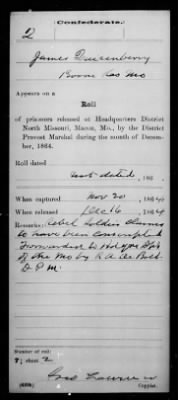 Confederate.
2
James Quisenberry
Boone Co Mo
Appears on a
Roll
of prisoners released at Headquarters District
North Missouri, Macon, Mo., by the District
Provost Marshal during the month of Decem-
ber, 1864.
Roll dated
not dated, 186 .
When captured Nov 20, 1864
When released Dec 16, 1864
Remarks: Rebel Soldier Claims
to have been Conscripted
Forwarded to Hdqrs Dpt
of the Mo by R. A. De Bolt
D. P. M.
Number of roll:
7; sheet 2
(639b)
Copyist.